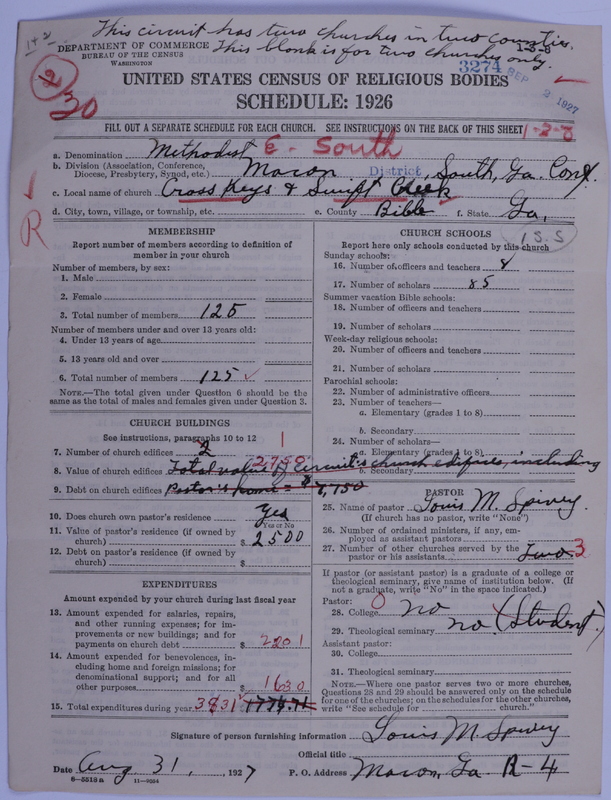 This circuit has two churches in two counties.
This blank is for two churches only.
1+2
DEPARTMENT OF COMMERCE
BUREAU OF THE CENSUS
WASHINGTON
1-3-8
3274 SEP 2 1927
2
20
UNITED STATES CENSUS OF RELIGIOUS BODIES
SCHEDULE: 1926
FILL OUT A SEPARATE SCHEDULE FOR EACH CHURCH. SEE INSTRUCTIONS ON THE BACK OF THIS SHEET
1-2-8
a. Denomination Methodist E. South
b. Division (Association, Conference, Diocese, Presbytery, Synod, etc.) Macon District, South, Ga. Conf.
c. Local name of church Cross Keys & Swift Creek
d. City, town, village, or township, etc. e. County Bibb f. State Ga,
R
MEMBERSHIP
Report number of members according to definition of
member in your church
Number of members, by sex:
1. Male
2. Female
3. Total number of members 125
Number of members under and over 13 years old:
4. Under 13 years of age
5. 13 years old and over
6. Total number of members 125 ✓
NOTE.—The total given under Question 6 should be the
same as the total of males and females given under Question 3.
CHURCH BUILDINGS
See instructions, paragraphs 10 to 12
7. Number of church edifices 2 1
8. Value of church edifices Total value of circuit's church edifices, including 2750
9. Debt on church edifices Pastor's home = $ 8,750
10. Does church own pastor's residence Yes
Yes or No
11. Value of pastor's residence (if owned by
church) $ 2500
12. Debt on pastor's residence (if owned by
church) $
EXPENDITURES
Amount expended by your church during last fiscal year
13. Amount expended for salaries, repairs,
and other running expenses; for im-
provements or new buildings; and for
payments on church debt $ 2201
14. Amount expended for benevolences, in-
cluding home and foreign missions; for
denominational support; and for all
other purposes $ 1630
15. Total expenditures during year 3831
CHURCH SCHOOLS
Report here only schools conducted by this church
1 S.S
Sunday schools:
16. Number of officers and teachers 8
17. Number of scholars 85
Summer vacation Bible schools:
18. Number of officers and teachers
19. Number of scholars
Week-day religious schools:
20. Number of officers and teachers
21. Number of scholars
Parochial schools:
22. Number of administrative officers
23. Number of teachers—
a. Elementary (grades 1 to 8)
b. Secondary
24. Number of scholars—
a. Elementary (grades 1 to 8)
b. Secondary
PASTOR
25. Name of pastor Louis M. Spivey.
(If church has no pastor, write "None")
26. Number of ordained ministers, if any, em-
ployed as assistant pastors
27. Number of other churches served by the
pastor or his assistants Two 3
If pastor (or assistant pastor) is a graduate of a college or
theological seminary, give name of institution below. (If
not a graduate, write "No" in the space indicated.)
Pastor:
28. College 0 no
29. Theological seminary no. (Student.)
Assistant pastor:
30. College
31. Theological seminary
NOTE.—Where one pastor serves two or more churches,
Questions 28 and 29 should be answered only on the schedule
for one of the churches; on the schedules for the other churches,
write "See schedule for church."
Signature of person furnishing information Louis M. Spivey
Official title
Date Aug. 31, 1927 P. O. Address Macon, Ga. R-4
8-5518a 11-9054